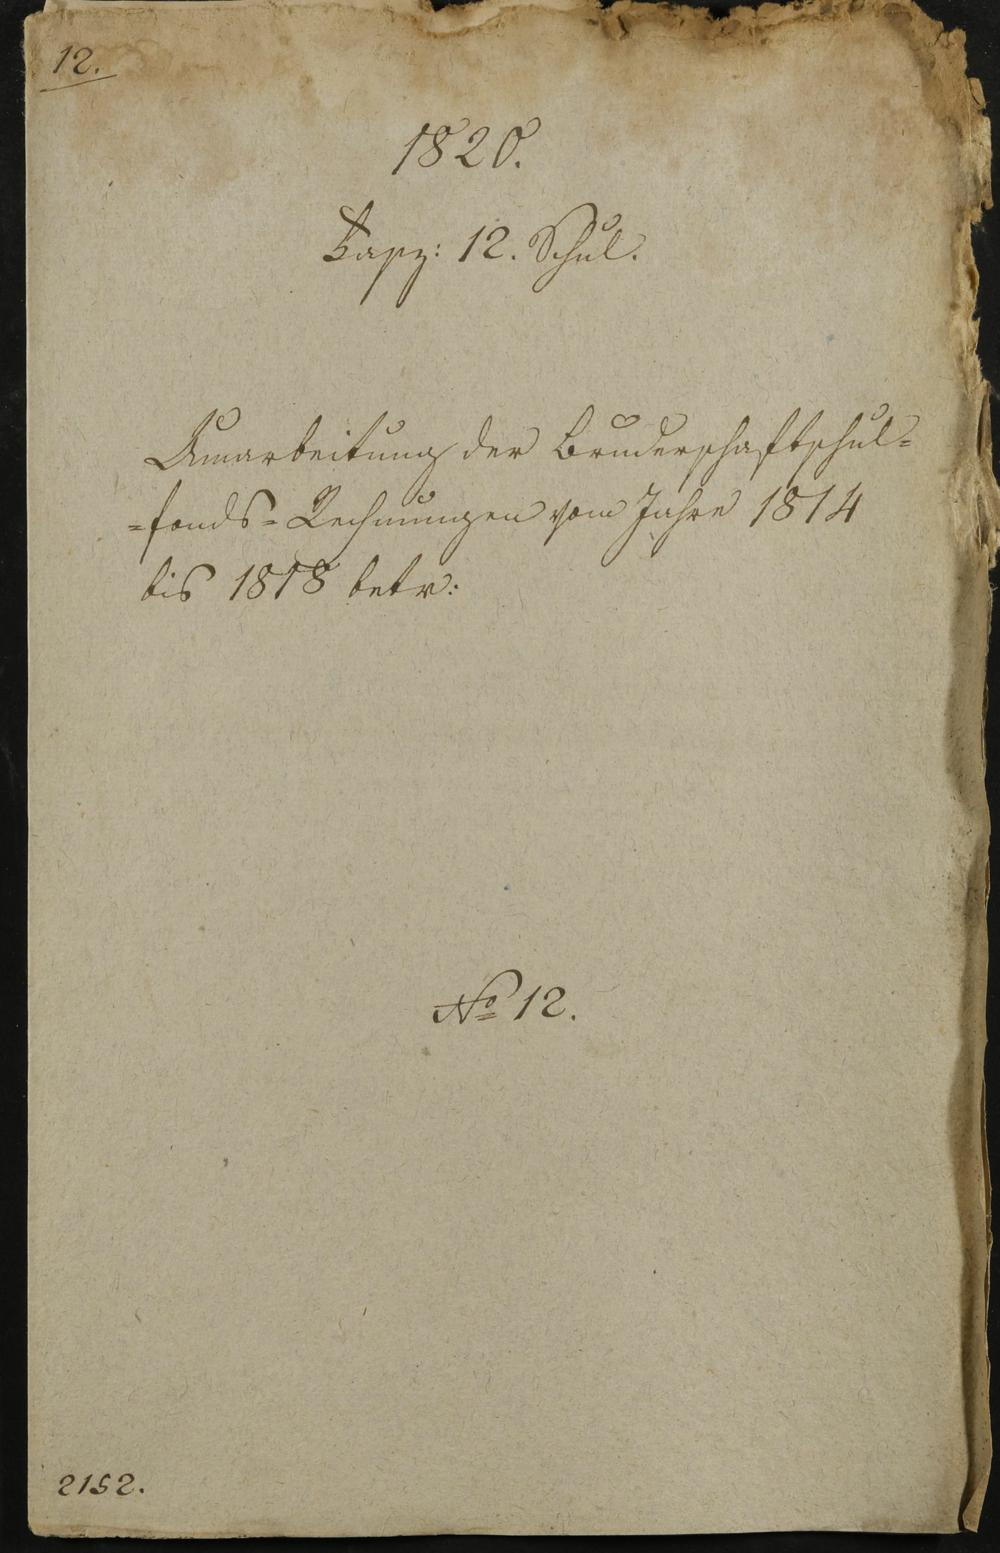 12.
1820.
Fasz: 12. Schul.
Umarbeitung der Bruderschaftschul=
=fonds=Rechnungen vom Jahre 1814
bis 1818 betr:
No 12.
2152.